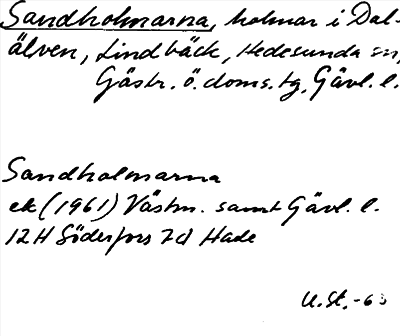 Sandholmarna, holmar i Dal-
älven, Lindbäck, Hedesunda sn,
Gästr. ö. doms. tg, Gävl. l.
Sandholmarna
ek (1961) Västm. samt Gävl. l.
12H Söderfors 7d Hade
U. St. -63